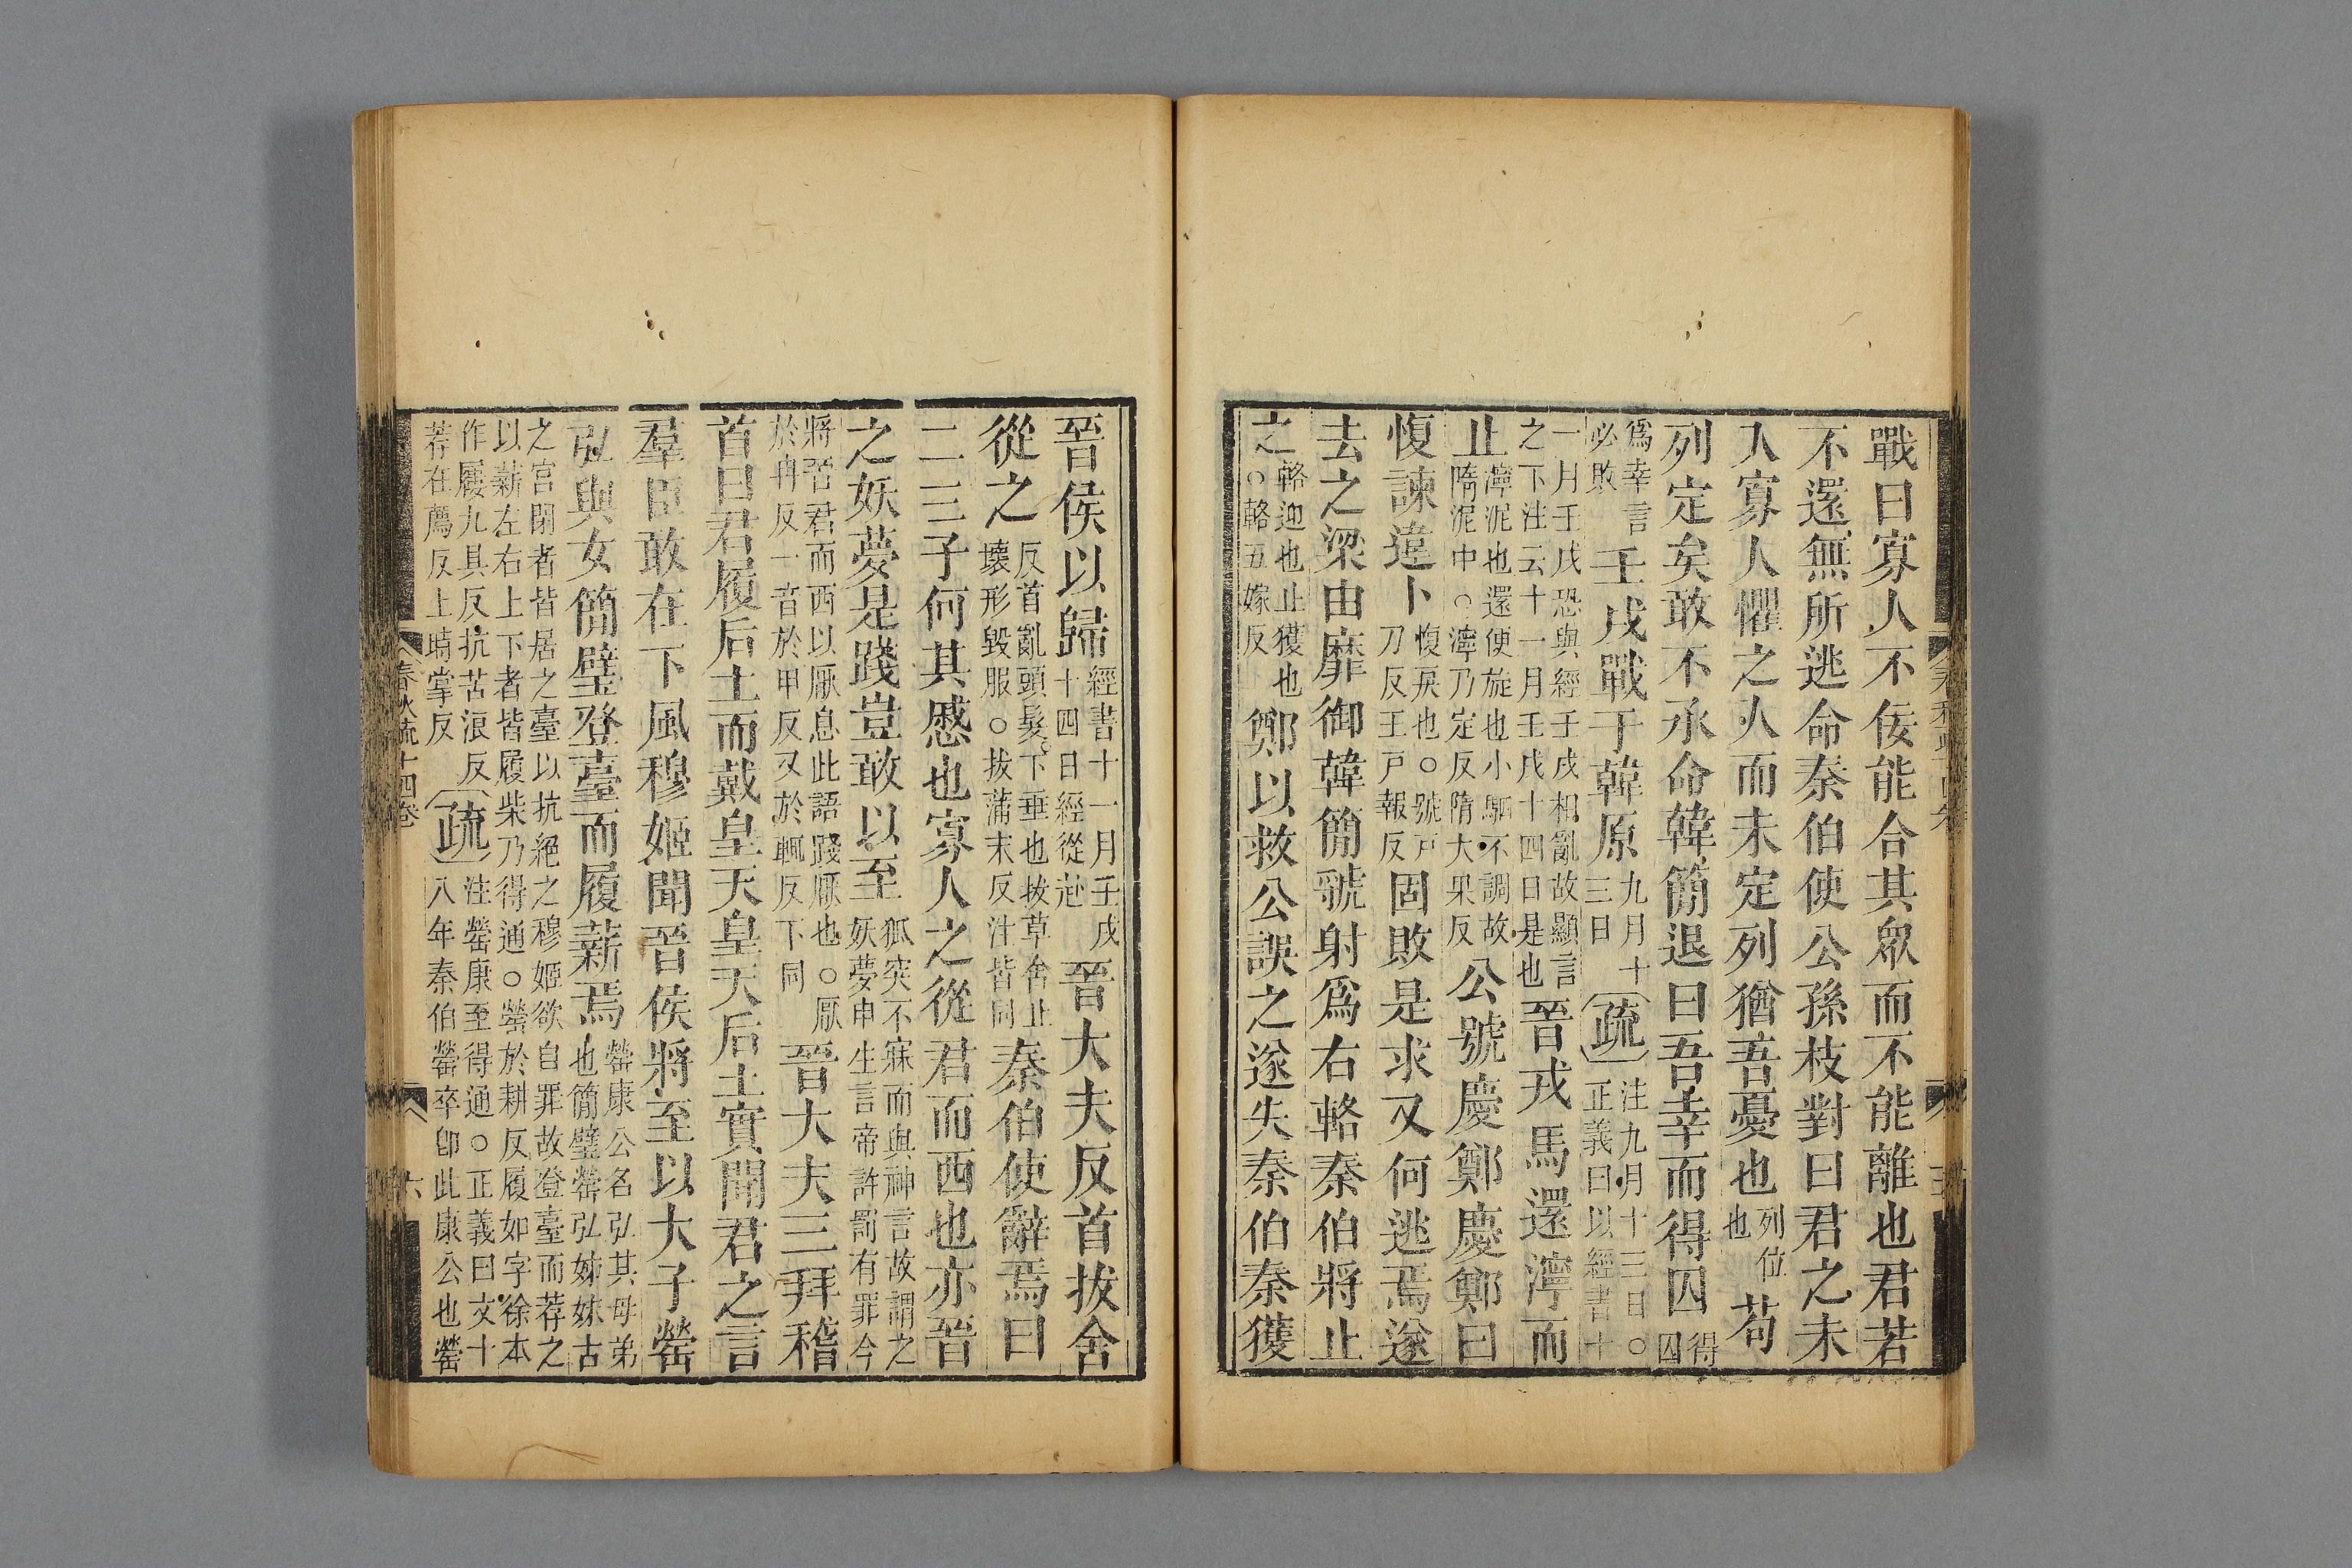 戰曰寡人不佞能合其衆而不能離也君若
不還無所逃命秦伯使公孫枝對曰君之未
入寡人懼之入而未定列猶吾憂也列位也苟
列定矣敢不承命韓簡退曰吾幸而得囚得囚
爲幸言必敗壬戌戰于韓原九月十三日疏注九月十三日○正義曰以經書十
一月壬戌恐與經壬戌相亂故顯言之下注云十一月壬戌十四日是也晉戎馬還濘而
止濘泥也還便旋也小駟不調故隋泥中○濘乃定反隋大果反公號慶鄭慶鄭曰
愎諫違卜愎戾也○號戸刀反王戸報反固敗是求又何逃焉遂
去之梁由靡御韓簡虢射爲右輅秦伯將止
之輅迎也止獲也○輅五嫁反鄭以救公誤之遂失秦伯秦獲
晉侯以歸經書十一月壬戌十四日經從赴晉大夫反首拔舍
從之反首亂頭髮下垂也拔草舍止壞形毀服○拔蒲末反注皆同秦伯使辭焉曰
二三子何其慼也寡人之從君而西也亦晉
之妖夢是踐豈敢以至狐突不寐而與神言故謂之妖夢申生言帝許罰有罪今
將晉君而西以厭息此語踐厭也○厭於冉反一音於甲反又於輒反下同晉大夫三拜稽
首曰君履后土而戴皇天皇天后土實聞君之言
羣臣敢在下風穆姬聞晉侯將至以大子罃
弘與女簡璧登臺而履薪焉罃康公名弘其母弟也簡璧罃弘姊妹古
之宮閉者皆居之臺以抗絕之穆姬欲自罪故登臺而荐之以薪左右上下者皆履柴乃得通○罃於耕反履如字徐本
作屨九具反抗苦浪反荐在薦反上時掌反疏注罃康至得通○正義曰文十八年秦伯罃卒卽此康公也罃
春秋疏十四卷
六